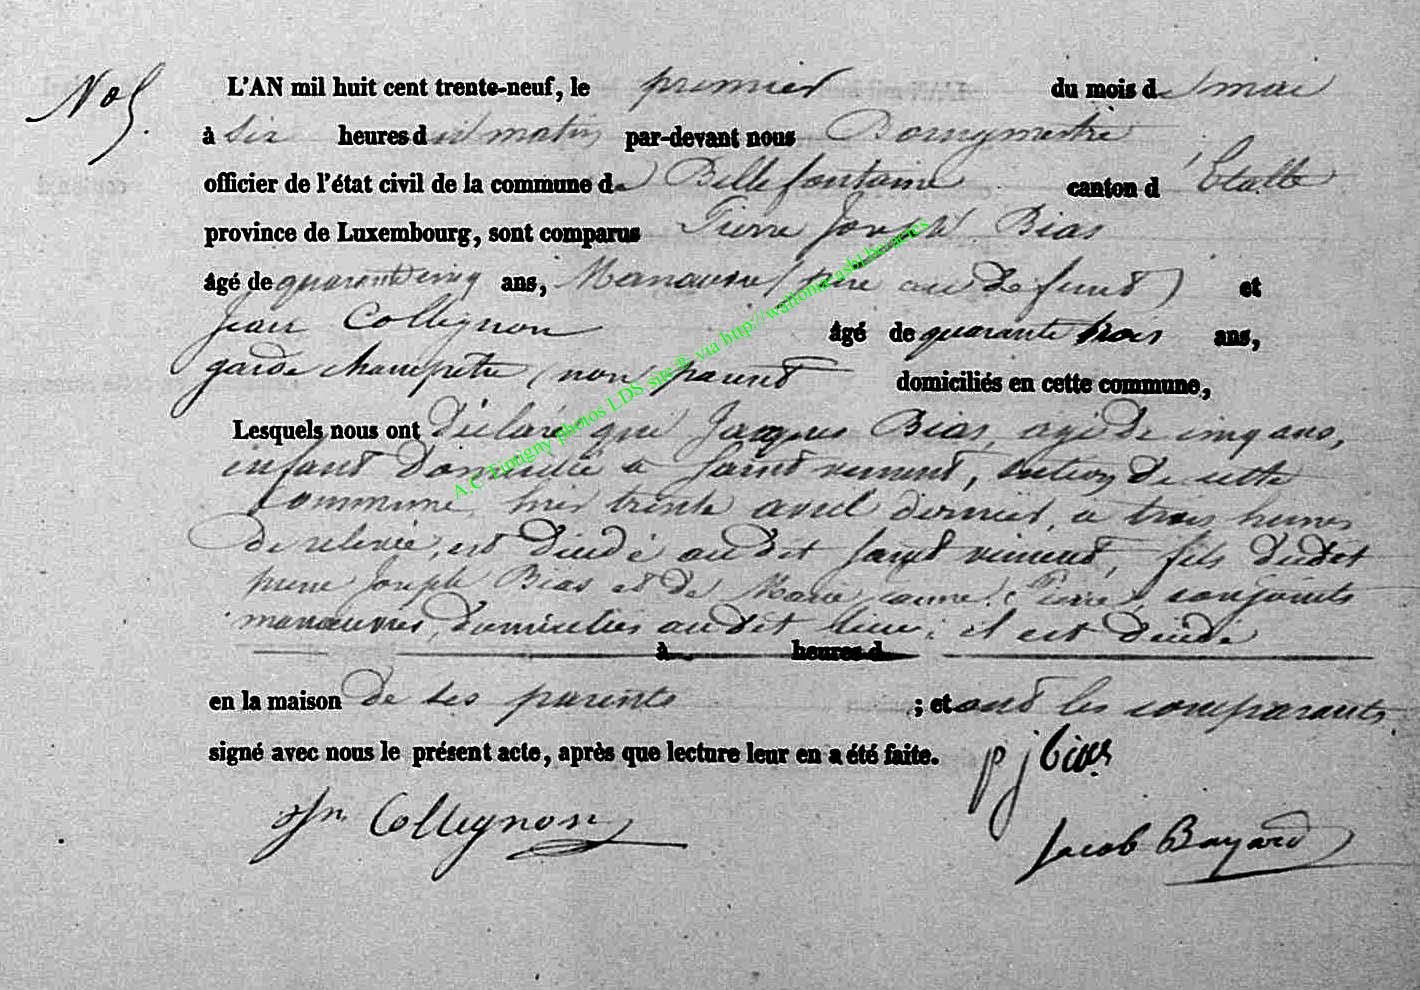 No 5.
L'AN mil huit cent trente-neuf, le premier du mois de mai
à six heures du matin par-devant nous Bourgmestre
officier de l'état civil de la commune de Bellefontaine canton d'Etalle
province de Luxembourg, sont comparus Pierre Joseph Bias
âgé de quarante cinq ans, Manœuvre (père au défunt) et
Jean Collignon âgé de quarante trois ans,
garde champêtre (non parent domiciliés en cette commune,
Lesquels nous ont déclaré que Jacques Bias agé de cinq ans,
enfant domicilié a saint vincent, section de cette
commune, hier trente avril dernier, a trois heures
de relevée, est décédé au dit saint vincent, fils dudit
pierre Joseph Bias et de Marie Pierre, conjoints
manœuvres, domiciliés audit lieu; il est décédé
à heures d
en la maison de ses parents ; et ont les comparants
signé avec nous le présent acte, après que lecture leur en a été faite. p j bias
Jn Collignon
Jacob Bayard
A.C Tintigny photos LDS site ® via http://wallonica